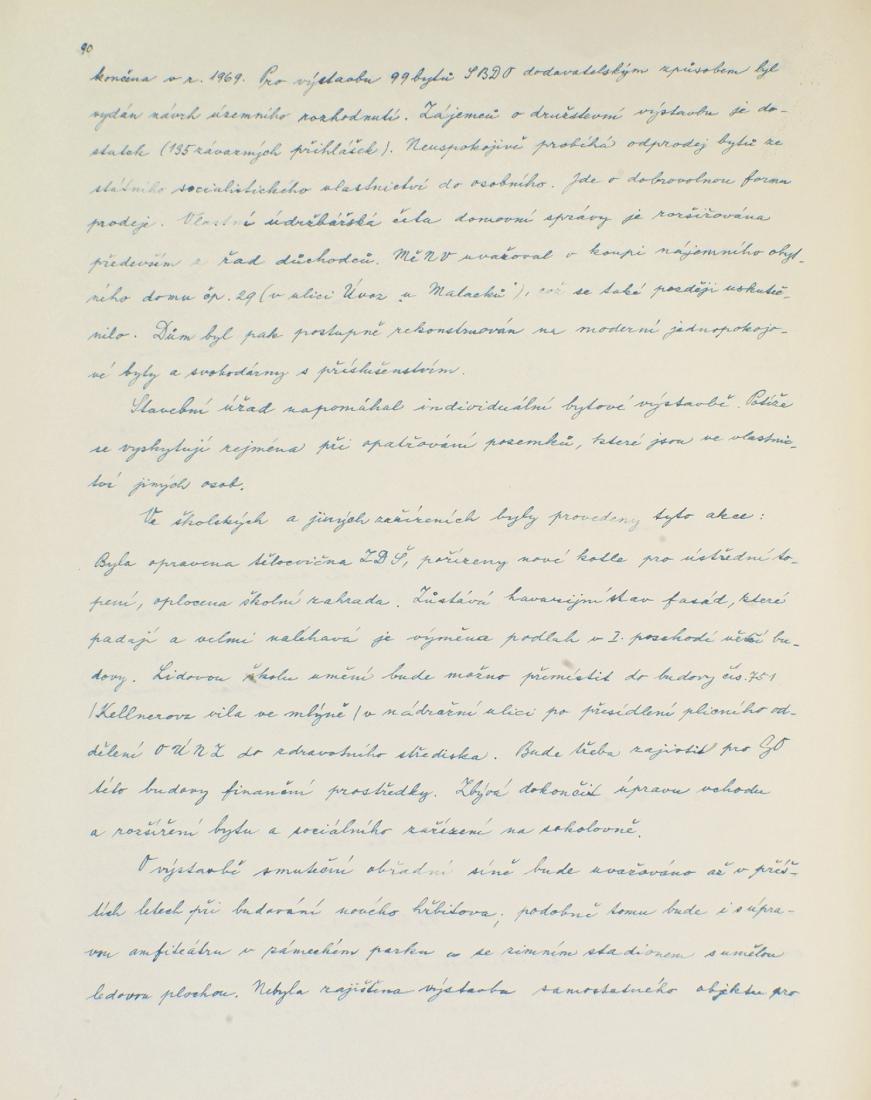 90
končena v r. 1969. Pro výstavbu 99 bytů SBD dodavatelským způsobem byl
vydán návrh územního rozhodnutí. Zájemců o družstevní výstavbu je do-
statek (135 závazných přihlášek). Neuspokojivě probíhá odprodej bytů ze
státního socialistického vlastnictví do osobního. Jde o dobrovolnou formu
prodeje. Vlastní údržbářská četa domovní správy je rozšiřována
především z řad důchodců. MěNV uvažoval o koupi nájemního obyt-
ného domu čp. 29 (v ulici Úvoz „u Malacků"), což se také později uskuteč-
nilo. Dům byl pak postupně rekonstruován na moderní jednopokojo-
vé byty a svobodárny s příslušenstvím.
Stavební úřad napomáhal individuální bytové výstavbě. Potíže
se vyskytují zejména při opatřování pozemků, které jsou ve vlastnic-
tví jiných osob.
Ve školských a jiných zařízeních byly provedeny tyto akce:
Byla opravena tělocvična ZDŠ, pořízeny nové kotle pro ústřední to-
pení, oplocena školní zahrada. Zůstává havarijní stav fasád, které
padají a velmi naléhavá je výměna podlah v I. poschodí větší bu-
dovy. Lidovou školu umění bude možno přemístit do budovy čís. 751
/Kellnerova vila ve mlýně/ v nádražní ulici po přesídlení plicního od-
dělení OÚNZ do zdravotního střediska. Bude třeba zajistit pro GO
této budovy finanční prostředky. Zbývá dokončit úpravu vchodu
a rozšíření bytu a sociálního zařízení na sokolovně.
O výstavbě smuteční obřadní síně bude uvažováno až v příš-
tích letech při budování nového hřbitova; podobně tomu bude i s úpra-
vou amfiteátru v zámeckém parku a se zimním stadionem s umělou
ledovou plochou. Nebyla zajištěna výstavba samostatného objektu pro